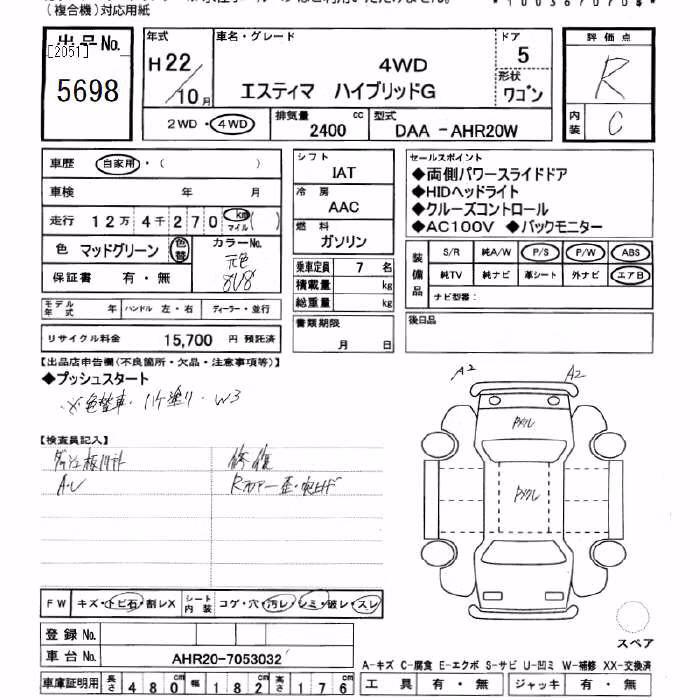 (複合機)対応用紙
出品No.
[2051]
5698
年式
H22/10月
車名・グレード
4WD
エスティマ ハイブリッドG
ドア
5
形状
ワゴン
2WD・4WD
排気量
2400 cc
型式
DAA-AHR20W
評価点
R
内装
C
車歴 自家用・( )
車検 年 月
走行 12万4千270 km マイル( )
色 マッドグリーン 色替
カラーNo.
元色
8V8
保証書 有・無
モデル年式 年 ハンドル 左・右 ディーラー・並行
リサイクル料金 15,700 円 預託済
シフト
IAT
冷房
AAC
燃料
ガソリン
乗車定員 7 名
積載量 kg
総重量 kg
書類期限
月 日
セールスポイント
◆両側パワースライドドア
◆HIDヘッドライト
◆クルーズコントロール
◆AC100V ◆バックモニター
装備品
S/R 純A/W P/S P/W ABS
純TV 純ナビ 革シート 外ナビ エアB
ナビ型番:
後日品
【出品店申告欄(不良箇所・欠品・注意事項等)】
◆プッシュスタート
※色替車・ハケ塗り・W3
【検査員記入】
A・レ
修復
A2
A2
FW キズ・トビ石・割レX
シート内装 コゲ・穴・汚レ・シミ・破レ・スレ
登録No.
車台No. AHR20-7053032
車庫証明用 長さ 480cm 幅 182cm 高さ 176cm
スペア
A-キズ C-腐食 E-エクボ S-サビ U-凹ミ W-補修 XX-交換済
工具 有・無 ジャッキ 有・無